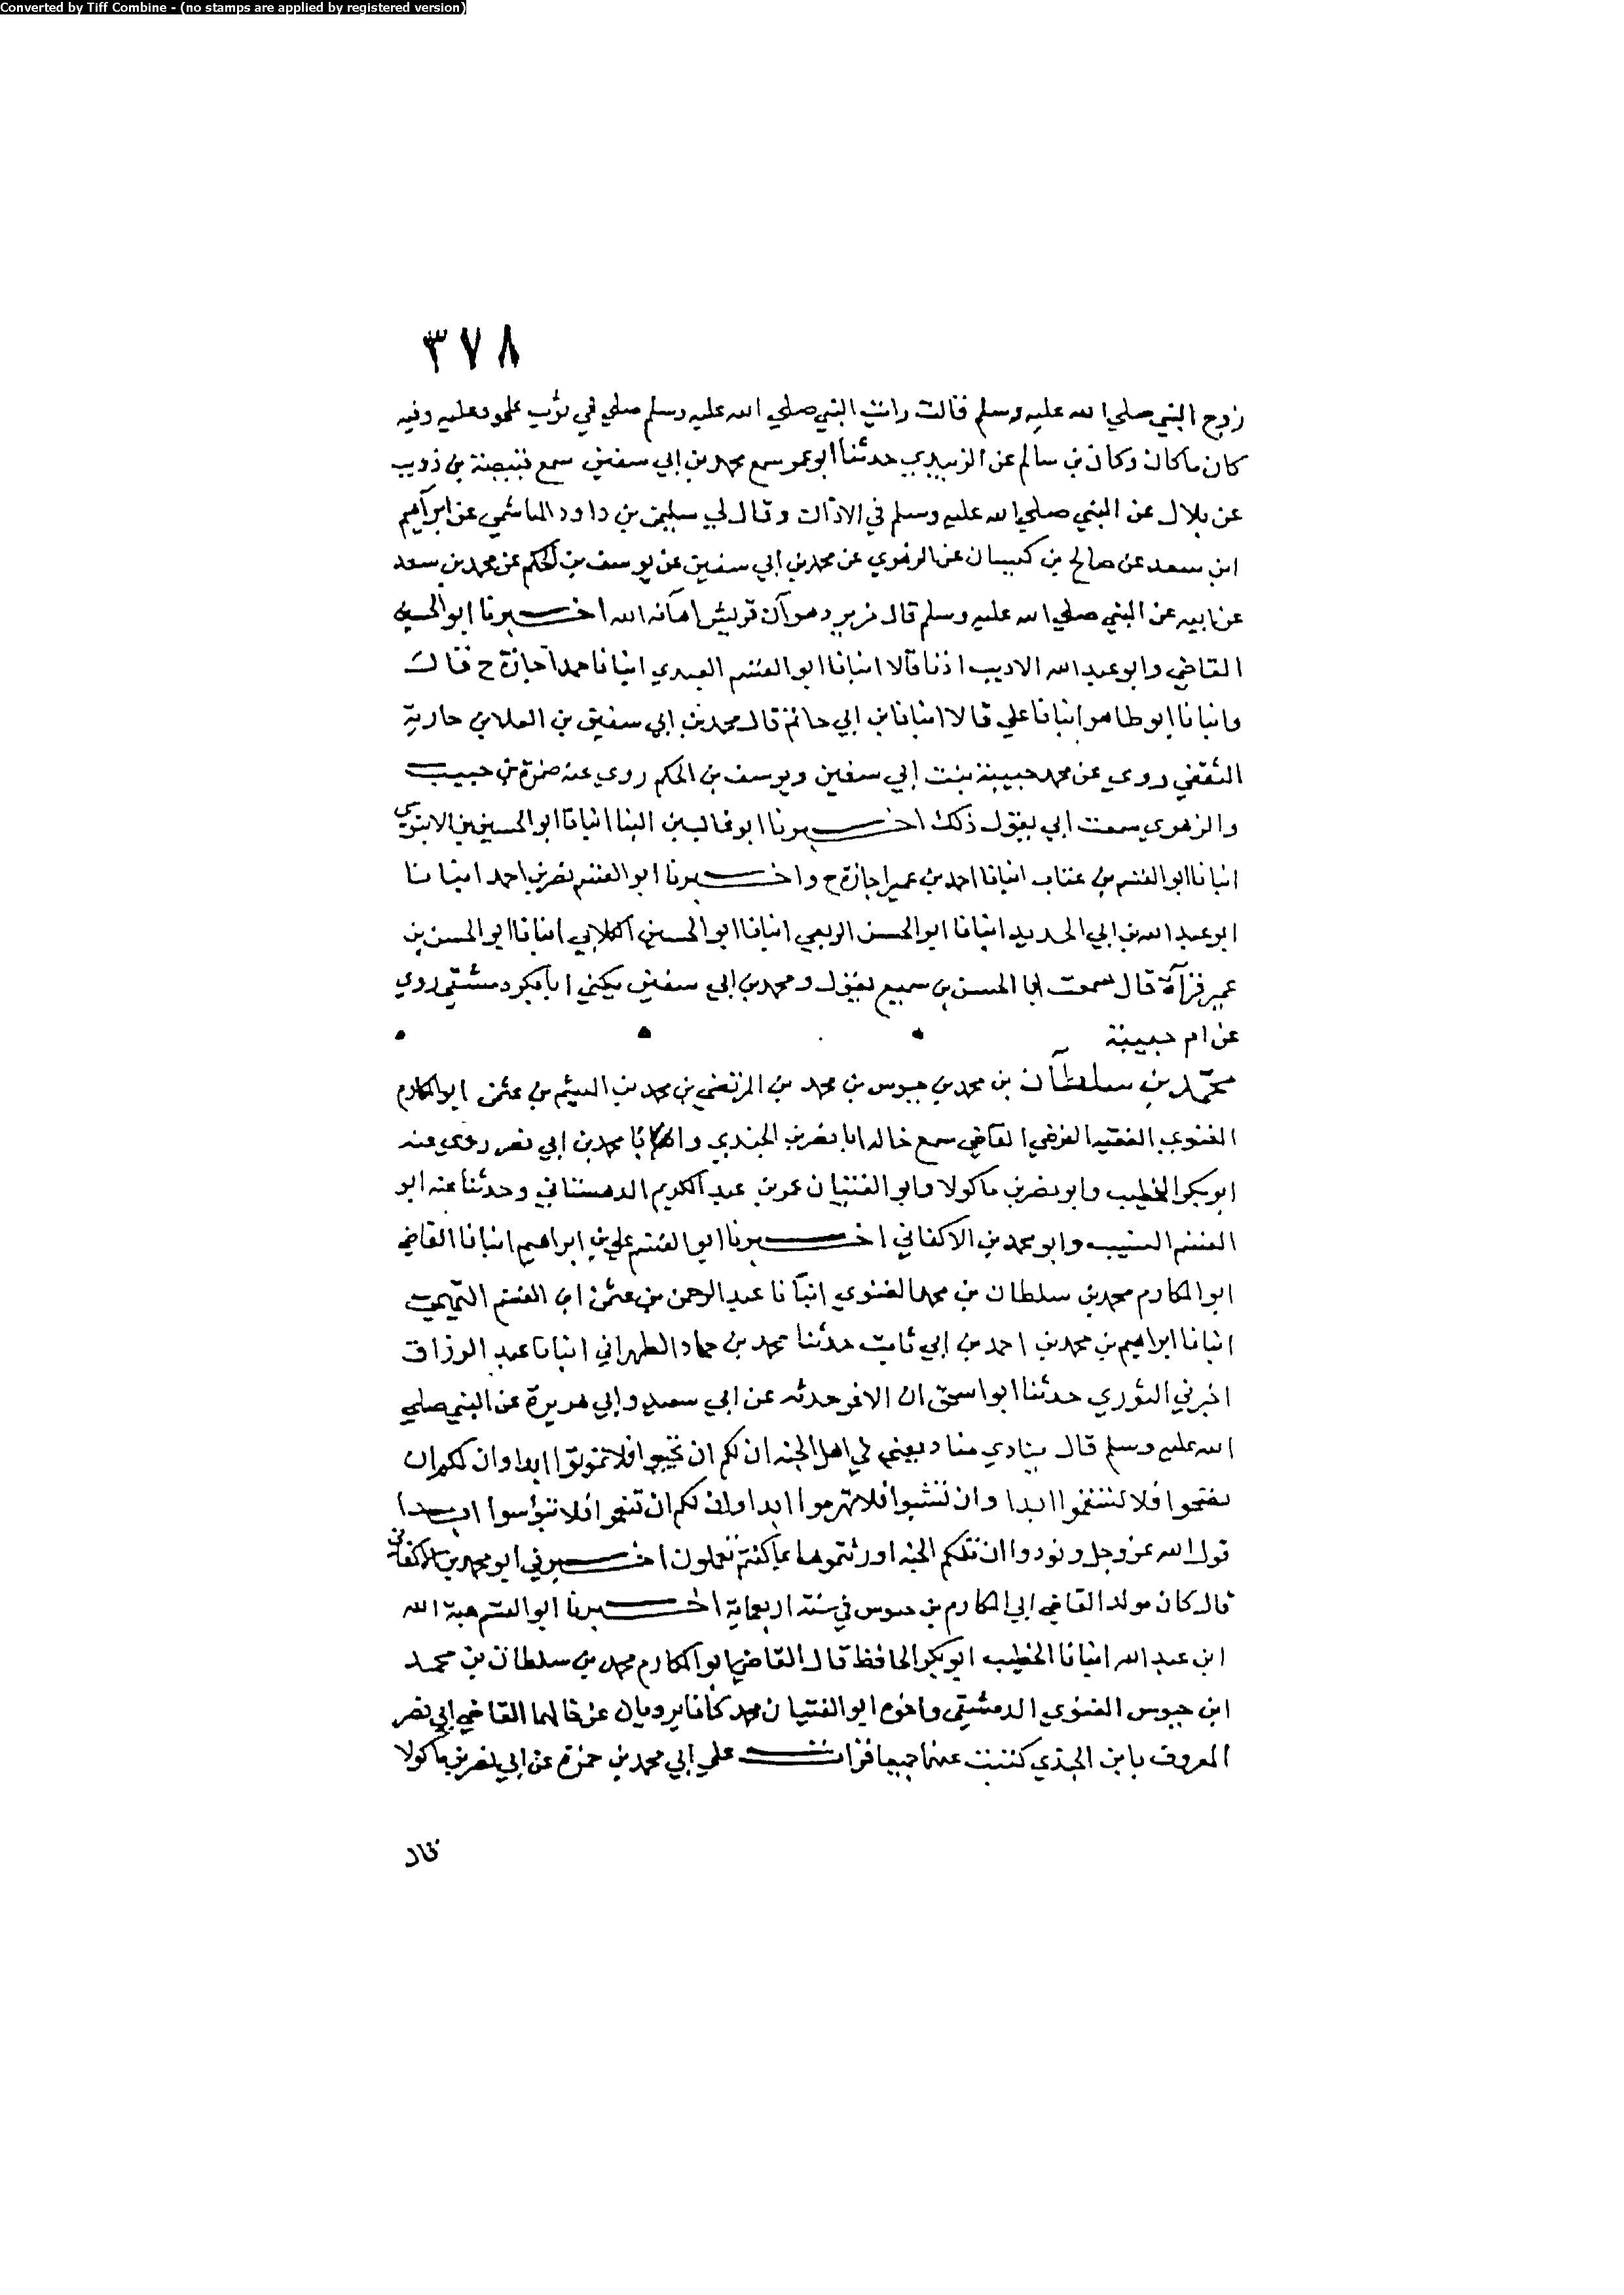 Converted by Tiff Combine - (no stamps are applied by registered version)
٣٧٨
زوج النبي صلي الله عليه وسلم قالت رايت النبي صلي الله عليه وسلم صلي في ثوب علي وعليه وفيه
كان ما كان وكان بن سالم عن الزبيدي حدثنا ابو عمر سمع محمد بن ابي سفين سمع قبيصة بن ذويب
عن بلال عن النبي صلي الله عليه وسلم في الاذان وقال لي سليمن بن داود الهاشمي عن ابراهيم
ابن سعد عن صالح بن كيسان عن الزهري عن محمد بن ابي سفين عن يوسف بن الحكم عن محمد بن سعد
عن ابيه عن النبي صلي الله عليه وسلم قال من يرد هوان قريش اهانه الله اخبرنا ابو الحسين
القاضي وابو عبد الله الاديب اذنا قالا انبانا ابو القسم العبدي انبانا حمد اجازة ح قال
وانبانا ابو طاهر انبانا علي قالا انبانا بن ابي حاتم قال محمد بن ابي سفين بن العلا بن جارية
الثقفي روي عن محمد حبيبة بنت ابي سفين ويوسف بن الحكم روي عنه ضمرة بن حبيب
والزهري سمعت ابي يقول ذلك اخبرنا ابو غالب بن البنا انبانا ابو الحسين بن الابنوسي
انبانا ابو القسم بن عتاب انبانا احمد بن عمير اجازة ح واخبرنا ابو القسم نصر بن احمد انبانا
ابو عبد الله بن ابي الحديد انبانا ابو الحسن الربعي انبانا ابو الحسين الكلابي انبانا ابو الحسن بن
عمير قراة قال سمعت ابا الحسن بن سميع يقول ومحمد بن ابي سفين يكني ابا بكر دمشقي روي
عن ام حبيبة
محمد بن سلطان بن محمد بن حيوس بن محمد بن المرتضي بن محمد بن الهيثم بن عثمن ابو المكارم
الغنوي الفقيه الفرضي القاضي سمع خاله ابا نصر بن الجندي وابا محمد بن ابي نصر روي عنه
ابو بكر الخطيب وابو نصر بن ماكولا وابو الفتيان عمر بن عبد الكريم الدهستاني وحدثنا عنه ابو
القسم النسيب وابو محمد بن الاكفاني اخبرنا ابو القسم علي بن ابراهيم انبانا القاضي
ابو المكارم محمد بن سلطان بن محمد الغنوي انبانا عبد الرحمن بن عثمن ابن القسم التميمي
انبانا ابراهيم بن محمد بن احمد بن ابي ثابت حدثنا محمد بن حماد الطهراني انبانا عبد الرزاق
اخبرني الثوري حدثنا ابو اسحق ان الاغر حدثه عن ابي سعيد وابي هريرة عن النبي صلي
الله عليه وسلم قال ينادي مناد يعني في اهل الجنه ان لكم ان تحيوا فلا تموتوا ابدا وان لكم ان
تصحوا فلا تسقموا ابدا وان تشبوا فلا تهرموا ابدا وان لكم ان تنعموا فلا تبؤسوا ابدا
قول الله عز وجل ونودوا ان تلكم الجنه اورثتموها بما كنتم تعملون اخبرني ابو محمد بن الاكفاني
قال كان مولد القاضي ابي المكارم بن حيوس في سنة اربعماية اخبرنا ابو القسم هبة الله
ابن عبد الله انبانا الخطيب ابو بكر الحافظ قال القاضي ابو المكارم محمد بن سلطان بن محمد
ابن حيوس الغنوي الدمشقي واخوه ابو الفتيان محمد كانا يرويان عن خالهما القاضي ابي نصر
المعروف بابن الجندي كتبت عنهما جميعا قرات علي ابي محمد بن حمزة عن ابي نصر بن ماكولا
قال